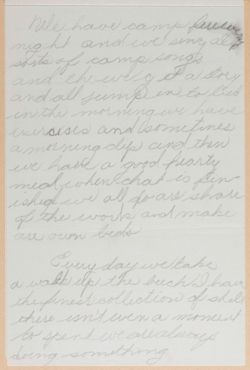 We have camp
night and we sing all
sorts of camp songs
and the we get a story
and all jump in to bed
in the morning we have
exersises and sometimes
a morning dip and then
we have a good hearty
meal when that is fin-
ished we all do are share
of the work and make
are own beds
Every day we take
a walk up the beach I have
the finest collection of shells
there isn't even a moment
to spent we are always
doing something